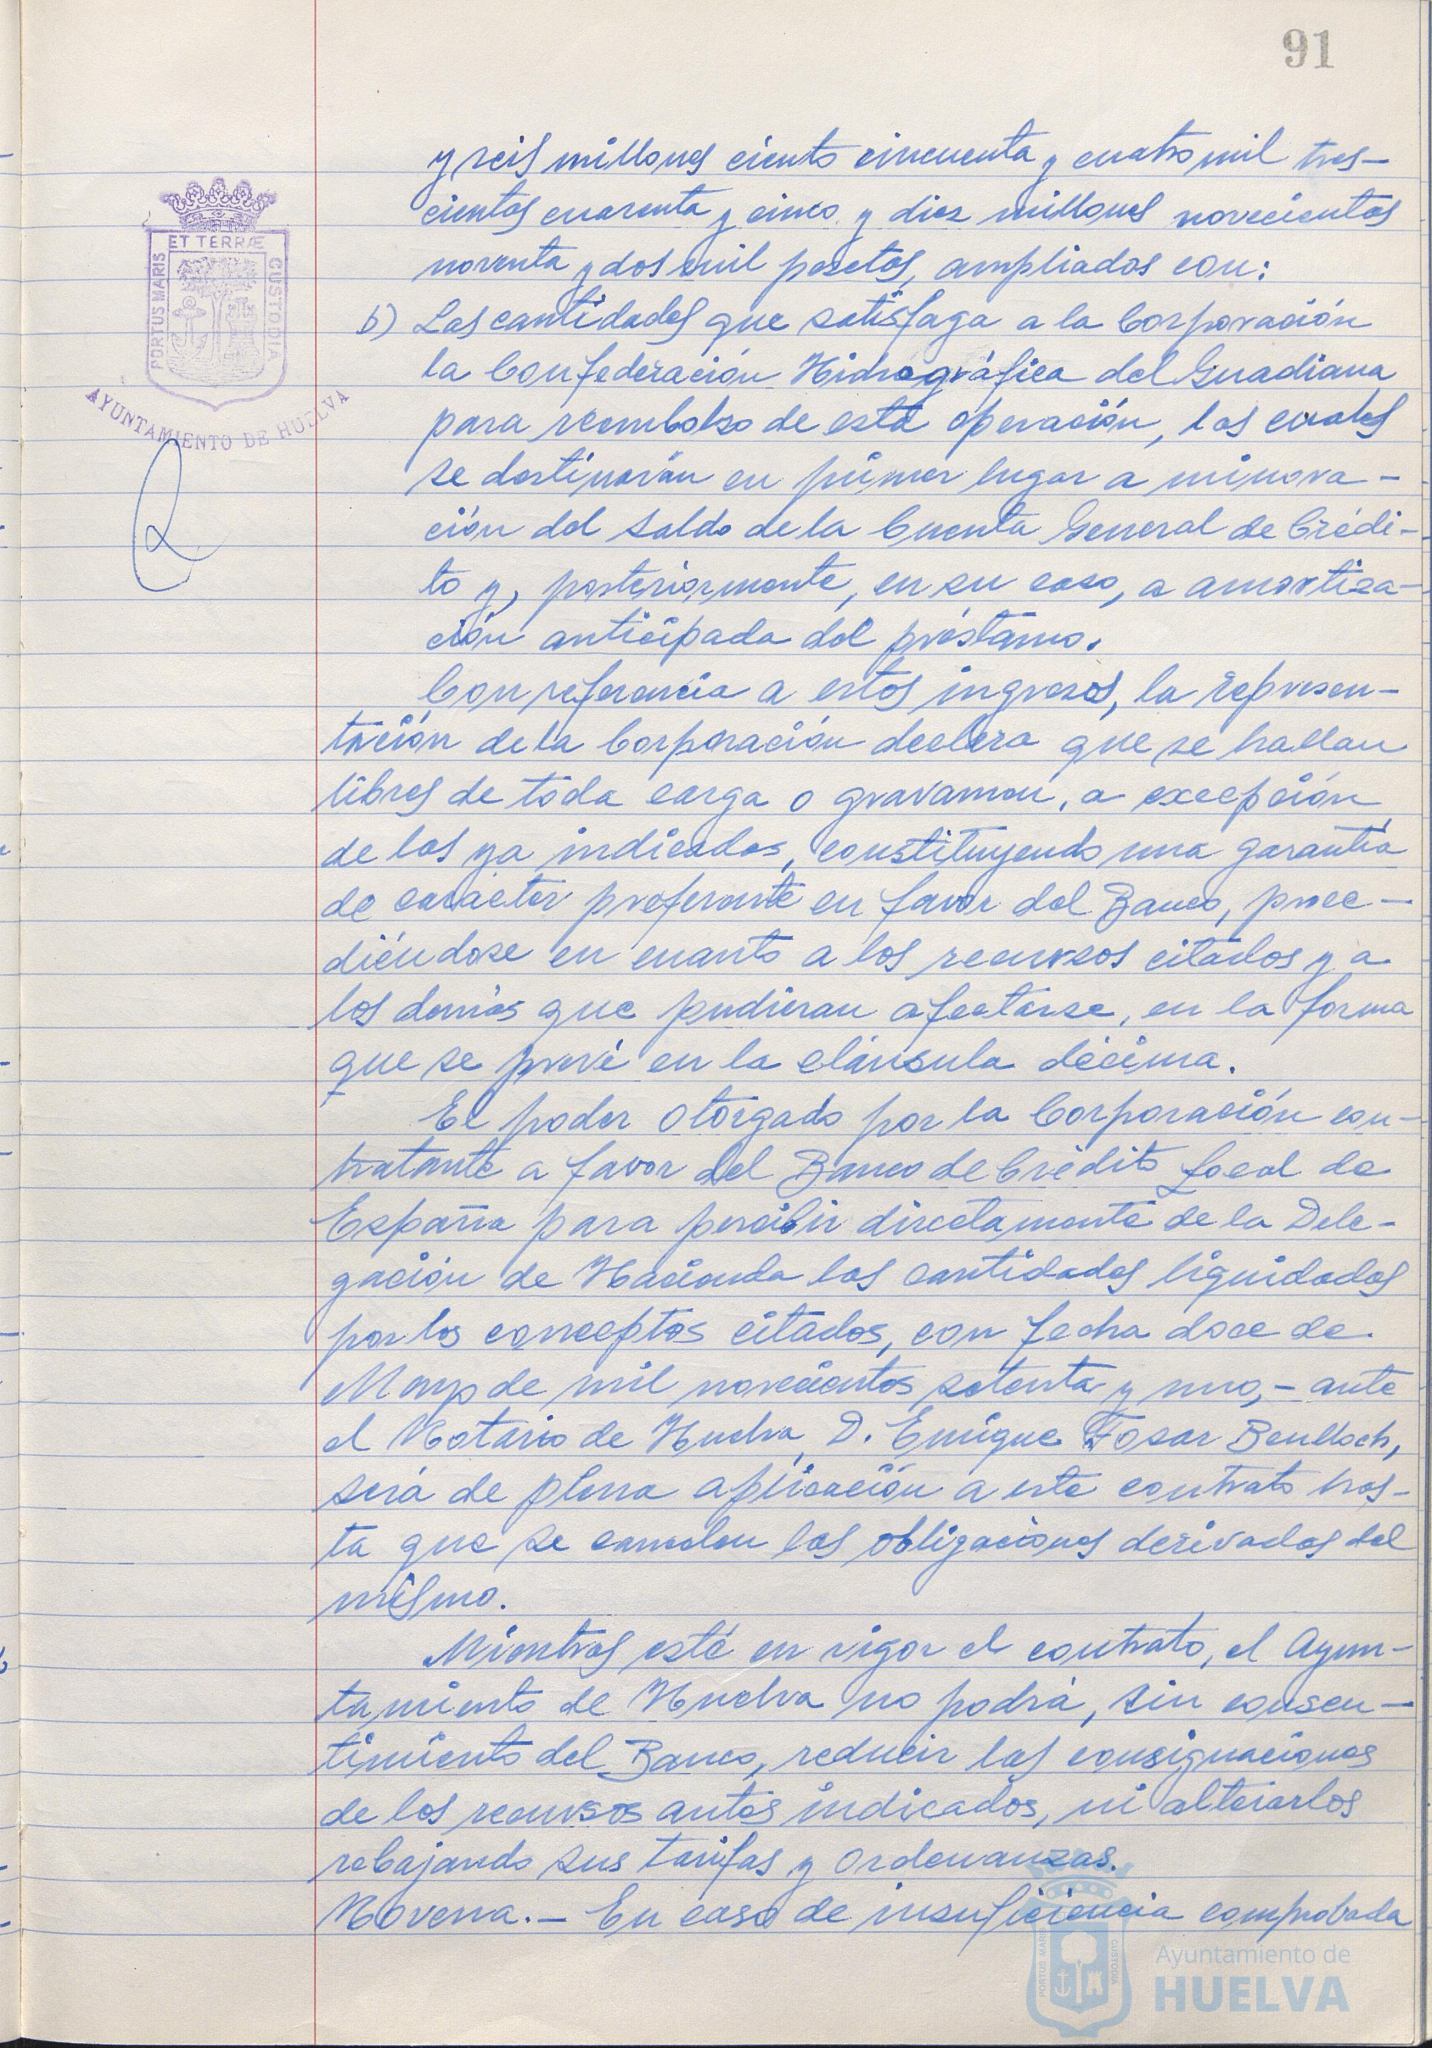 91
y seis millones ciento cincuenta y cuatro mil tres-
cientas cuarenta y cinco y diez millones novecientas
noventa y dos mil pesetas, ampliados con:
b) Las cantidades que satisfaga a la Corporación
la Confederación Hidrográfica del Guadiana
para reembolso de esta operación, las cuales
se destinarán en primer lugar a minora-
ción del saldo de la Cuenta General de Crédi-
to y, posteriormente, en su caso, a amortiza-
ción anticipada del préstamo.
Con referencia a estos ingresos, la represen-
tación de la Corporación declara que se hallan
libres de toda carga o gravamen, a excepción
de las ya indicadas, constituyendo una garantía
de carácter preferente en favor del Banco, proce-
diéndose en cuanto a los recursos citados y a
los demás que pudieran afectarse, en la forma
que se prevé en la cláusula décima.
El poder otorgado por la Corporación con-
tratante a favor del Banco de Crédito Local de
España para percibir directamente de la Dele-
gación de Hacienda las cantidades liquidadas
por los conceptos citados, con fecha doce de
Mayo de mil novecientos setenta y uno, - ante
el Notario de Huelva, D. Enrique Fosar Benlloch,
será de plena aplicación a este contrato has-
ta que se cancelen las obligaciones derivadas del
mismo.
Mientras esté en vigor el contrato, el Ayun-
tamiento de Huelva no podrá, sin consen-
timiento del Banco, reducir las consignaciones
de los recursos antes indicados, ni alterarlos
rebajando sus tarifas y Ordenanzas.
Novena.- En caso de insuficiencia comprobada
PORTUS MARIS ET TERRÆ CUSTODIA
AYUNTAMIENTO DE HUELVA
PORTUS MARIS CUSTODIA
Ayuntamiento de
HUELVA